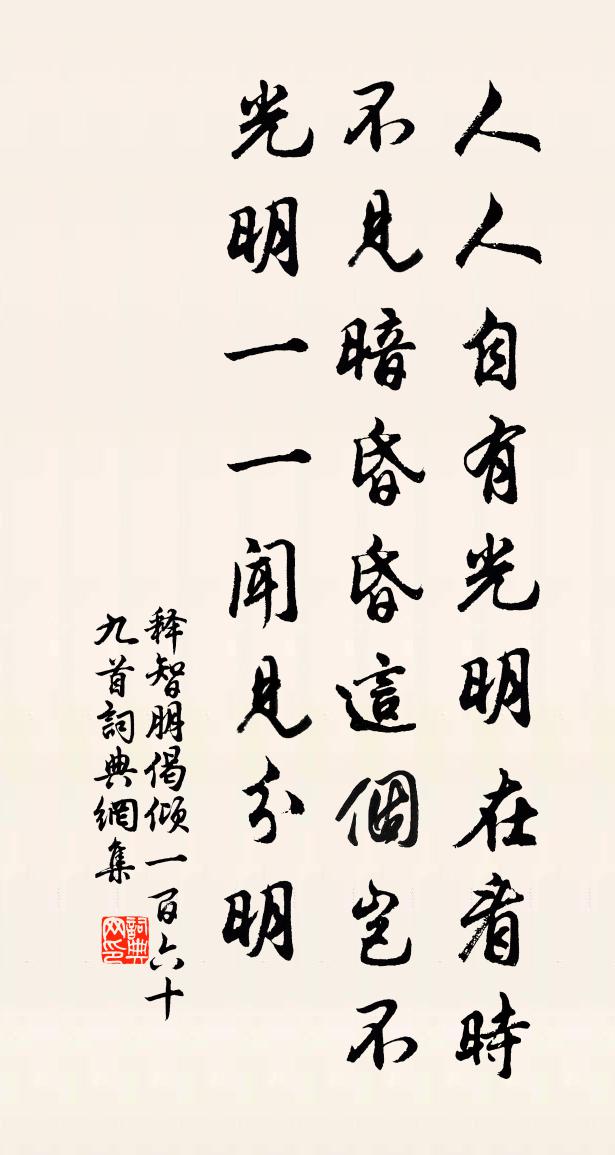 人人自有光明在看時
不見暗昏昏這個豈不
光明一一聞見分明
释智朋偈倾一百六十
九首詞典網集
詞典
网印